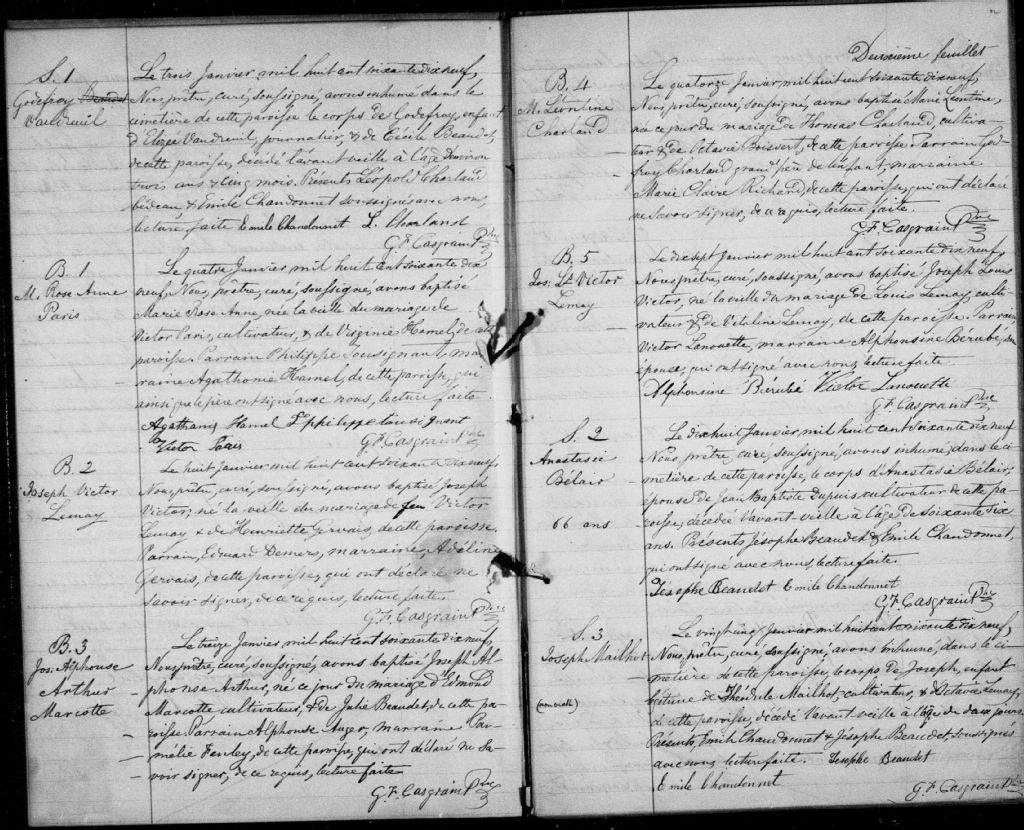 S. 1
Godefroy Beaudet
Vaudreuil
Le trois Janvier mil huit cent soixante dix neuf,
Nous prêtre, curé, soussigné, avons inhumé dans le
cimetière de cette paroisse le corps de Godefroy, enfant
d'Elizée Vaudreuil, journalier, & de Cécile Beaudet,
de cette paroisse, décédé l'avant veille à l'âge d'environ
trois ans & cinq mois. Présents Léopold Charland
bédeau & Emile Chandonnet soussignés avec nous,
lecture faite Emile Chandonnet L. Charland
G. F. Casgrain Ptre
B. 1
M. Rose Anne
Paris
Le quatre Janvier mil huit cent soixante dix
neuf, Nous, prêtre, curé, soussigné, avons baptisé
Marie Rose Anne, née la veille du mariage de
Victor Paris, cultivateur, & de Virginie Hamel, de cette
paroisse. Parrain Philippe Tousignant mar-
raine Agathonie Hamel, de cette paroisse, qui
ainsi que le père ont signé avec nous, lecture faite.
Agathany Hamel Philippe tousignant
Victor Paris G. F. Casgrain Ptre
B. 2
Joseph Victor
Lemay
Le huit Janvier mil huit cent soixante dix neuf
Nous, prêtre, curé, soussigné, avons baptisé Joseph
Victor, né la veille du mariage de feu Victor
Lemay & de Henriette Gervais, de cette paroisse.
Parrain, Edouard Demers, marraine Adéline
Gervais, de cette paroisse, qui ont déclaré ne
savoir signer, de ce requis, lecture faite.
G. F. Casgrain Ptre
B. 3
Jos. Alphonse
Arthur
Marcotte
Le treize Janvier mil huit cent soixante dix neuf,
Nous prêtre, curé, soussigné, avons baptisé Joseph Al-
phonse Arthur, né ce jour du mariage d'Edmond
Marcotte cultivateur, & de Julie Beaudet, de cette pa-
roisse Parrain Alphonse Auger, marraine Pa-
mélie Fenley, de cette paroisse, qui ont déclaré ne sa-
voir signer, de ce requis, lecture faite
G. F. Casgrain Ptre
Deuxième feuillet
B. 4
M. Léontine
Charland
Le quatorze Janvier mil huit cent soixante dix neuf,
Nous prêtre, curé, soussigné, avons baptisé Marie Léontine,
née ce jour du mariage de Thomas Charland, cultiva-
teur & de Octavie Boisvert, de cette paroisse Parrain God-
froy Charland grand père de l'enfant, marraine
Marie Claire Richard, de cette paroisse, qui ont déclaré
ne savoir signer, de ce requis, lecture faite.
G. F. Casgrain Ptre
B. 5
Jos. Ls Victor
Lemay
Le dix sept Janvier mil huit cent soixante dix neuf,
Nous prêtre, curé, soussigné, avons baptisé Joseph Louis
Victor, né la veille du mariage de Louis Lemay, culti-
vateur & de Vitaline Lemay, de cette paroisse. Parrain
Victor Lanouette, marraine Alphonsine Bérubé, son
épouse, qui ont signé avec nous, lecture faite.
Alphonsine Bérubé Victor Lanouette
G. F. Casgrain Ptre
S. 2
Anastasie
Bélair
66 ans
Le dix huit Janvier, mil huit cent soixante dix neuf
Nous, prêtre, curé, soussigné, avons inhumé, dans le ci-
metière de cette paroisse, le corps d'Anastasie Bélair,
épouse de Jean Baptiste Dupuis, cultivateur de cette pa-
roisse, décédée l'avant-veille à l'âge de Soixante Six
ans. Présents Jésophe Beaudet & Emile Chandonnet,
qui ont signé avec nous, lecture faite.
Jésophe Beaudet Emile Chandonnet
G. F. Casgrain Ptre
S. 3
Joseph Mailhot
Le vingt un Janvier mil huit cent soixante dix neuf,
Nous, prêtre, curé, soussigné, avons inhumé, dans le ci-
metière de cette paroisse, le corps de Joseph, enfant
légitime de Théodule Mailhot, cultivateur, & d'Octavie Lemay,
de cette paroisse, décédé l'avant veille à l'âge de deux jours
Présents, Emile Chandonnet & Jésophe Beaudet, soussignés
avec nous lecture faite. Jésophe Beaudet
Emile Chandonnet
G. F. Casgrain Ptre